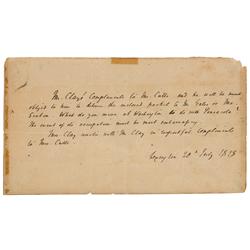 Mr. Clay's Compliments to Mr. Call and he will be much
oblig'd to him to deliver the inclosed packet to Mr. Gales or Mr.
Seaton. What do you mean at Washington to do with Pensacola
The event of its occupation must be most embarrassing.
Mrs. Clay unites with Mr. Clay in respectful compliments
to Mrs. Call.
Lexington 20th July 1818